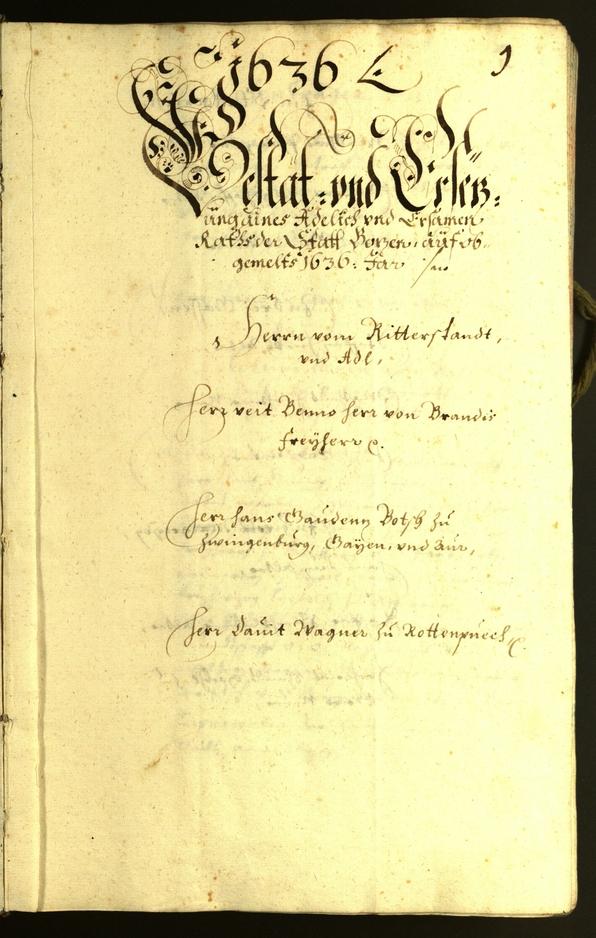 1636
1
Bestät: und Ersez:
ung aines Adelich vnd Ersamen
Raths der Statt Bozen, auf ob
gemelts 1636: Jar
Herrn vom Ritterstandt,
vnd Adl,
Herr Veit Benno Herr von Brandis
Freyherr
Herr Hans Gaudenz Botsch zu
Zwingenburg, Gayen, vnd Aur,
Herr Dauit Wagner zu Rottenpuech